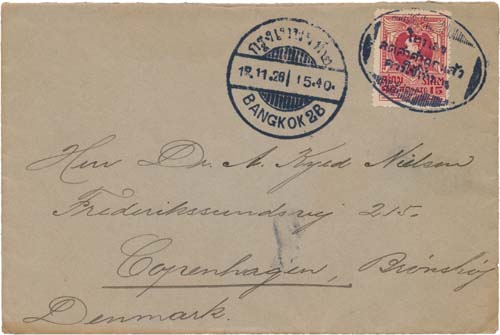 กรุงเทพฯที่๒
12.11.28 15.40.
BANGKOK 2B
15
Herr Dr. A. Kyed Nielsen
Frederikssundsvej 215.
Copenhagen, Brønshøj
Denmark.